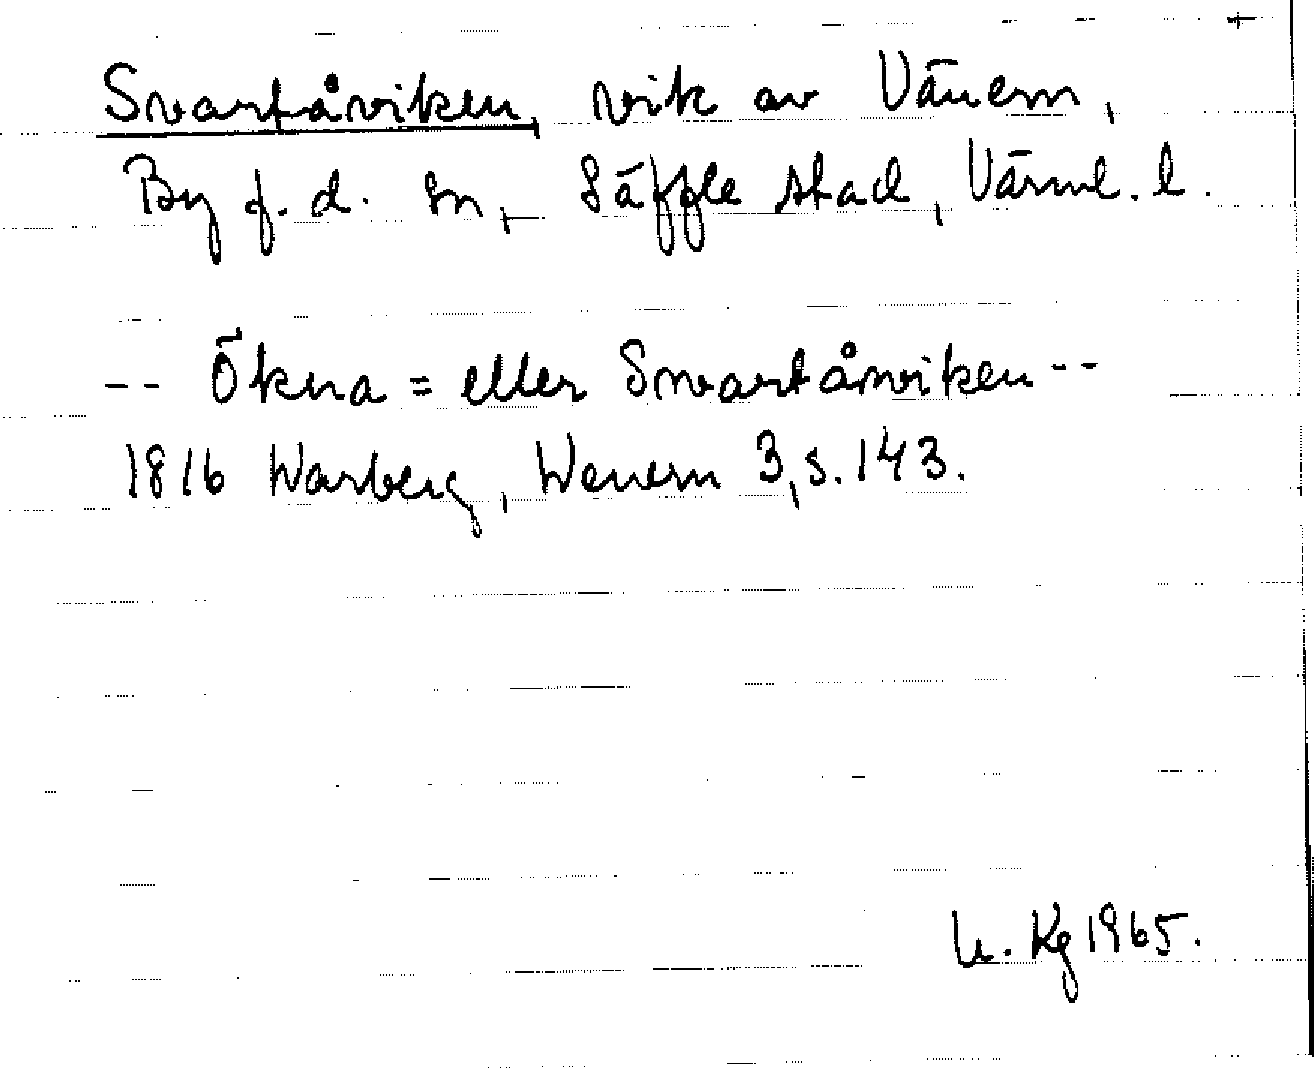 Svartåviken, vik av Vänern,
By f.d. sn, Säffle stad, Värml. l.
-- Ökna = eller Svartåviken --
1816 Warberg, Wenern 3, s. 143.
U. Kg 1965.